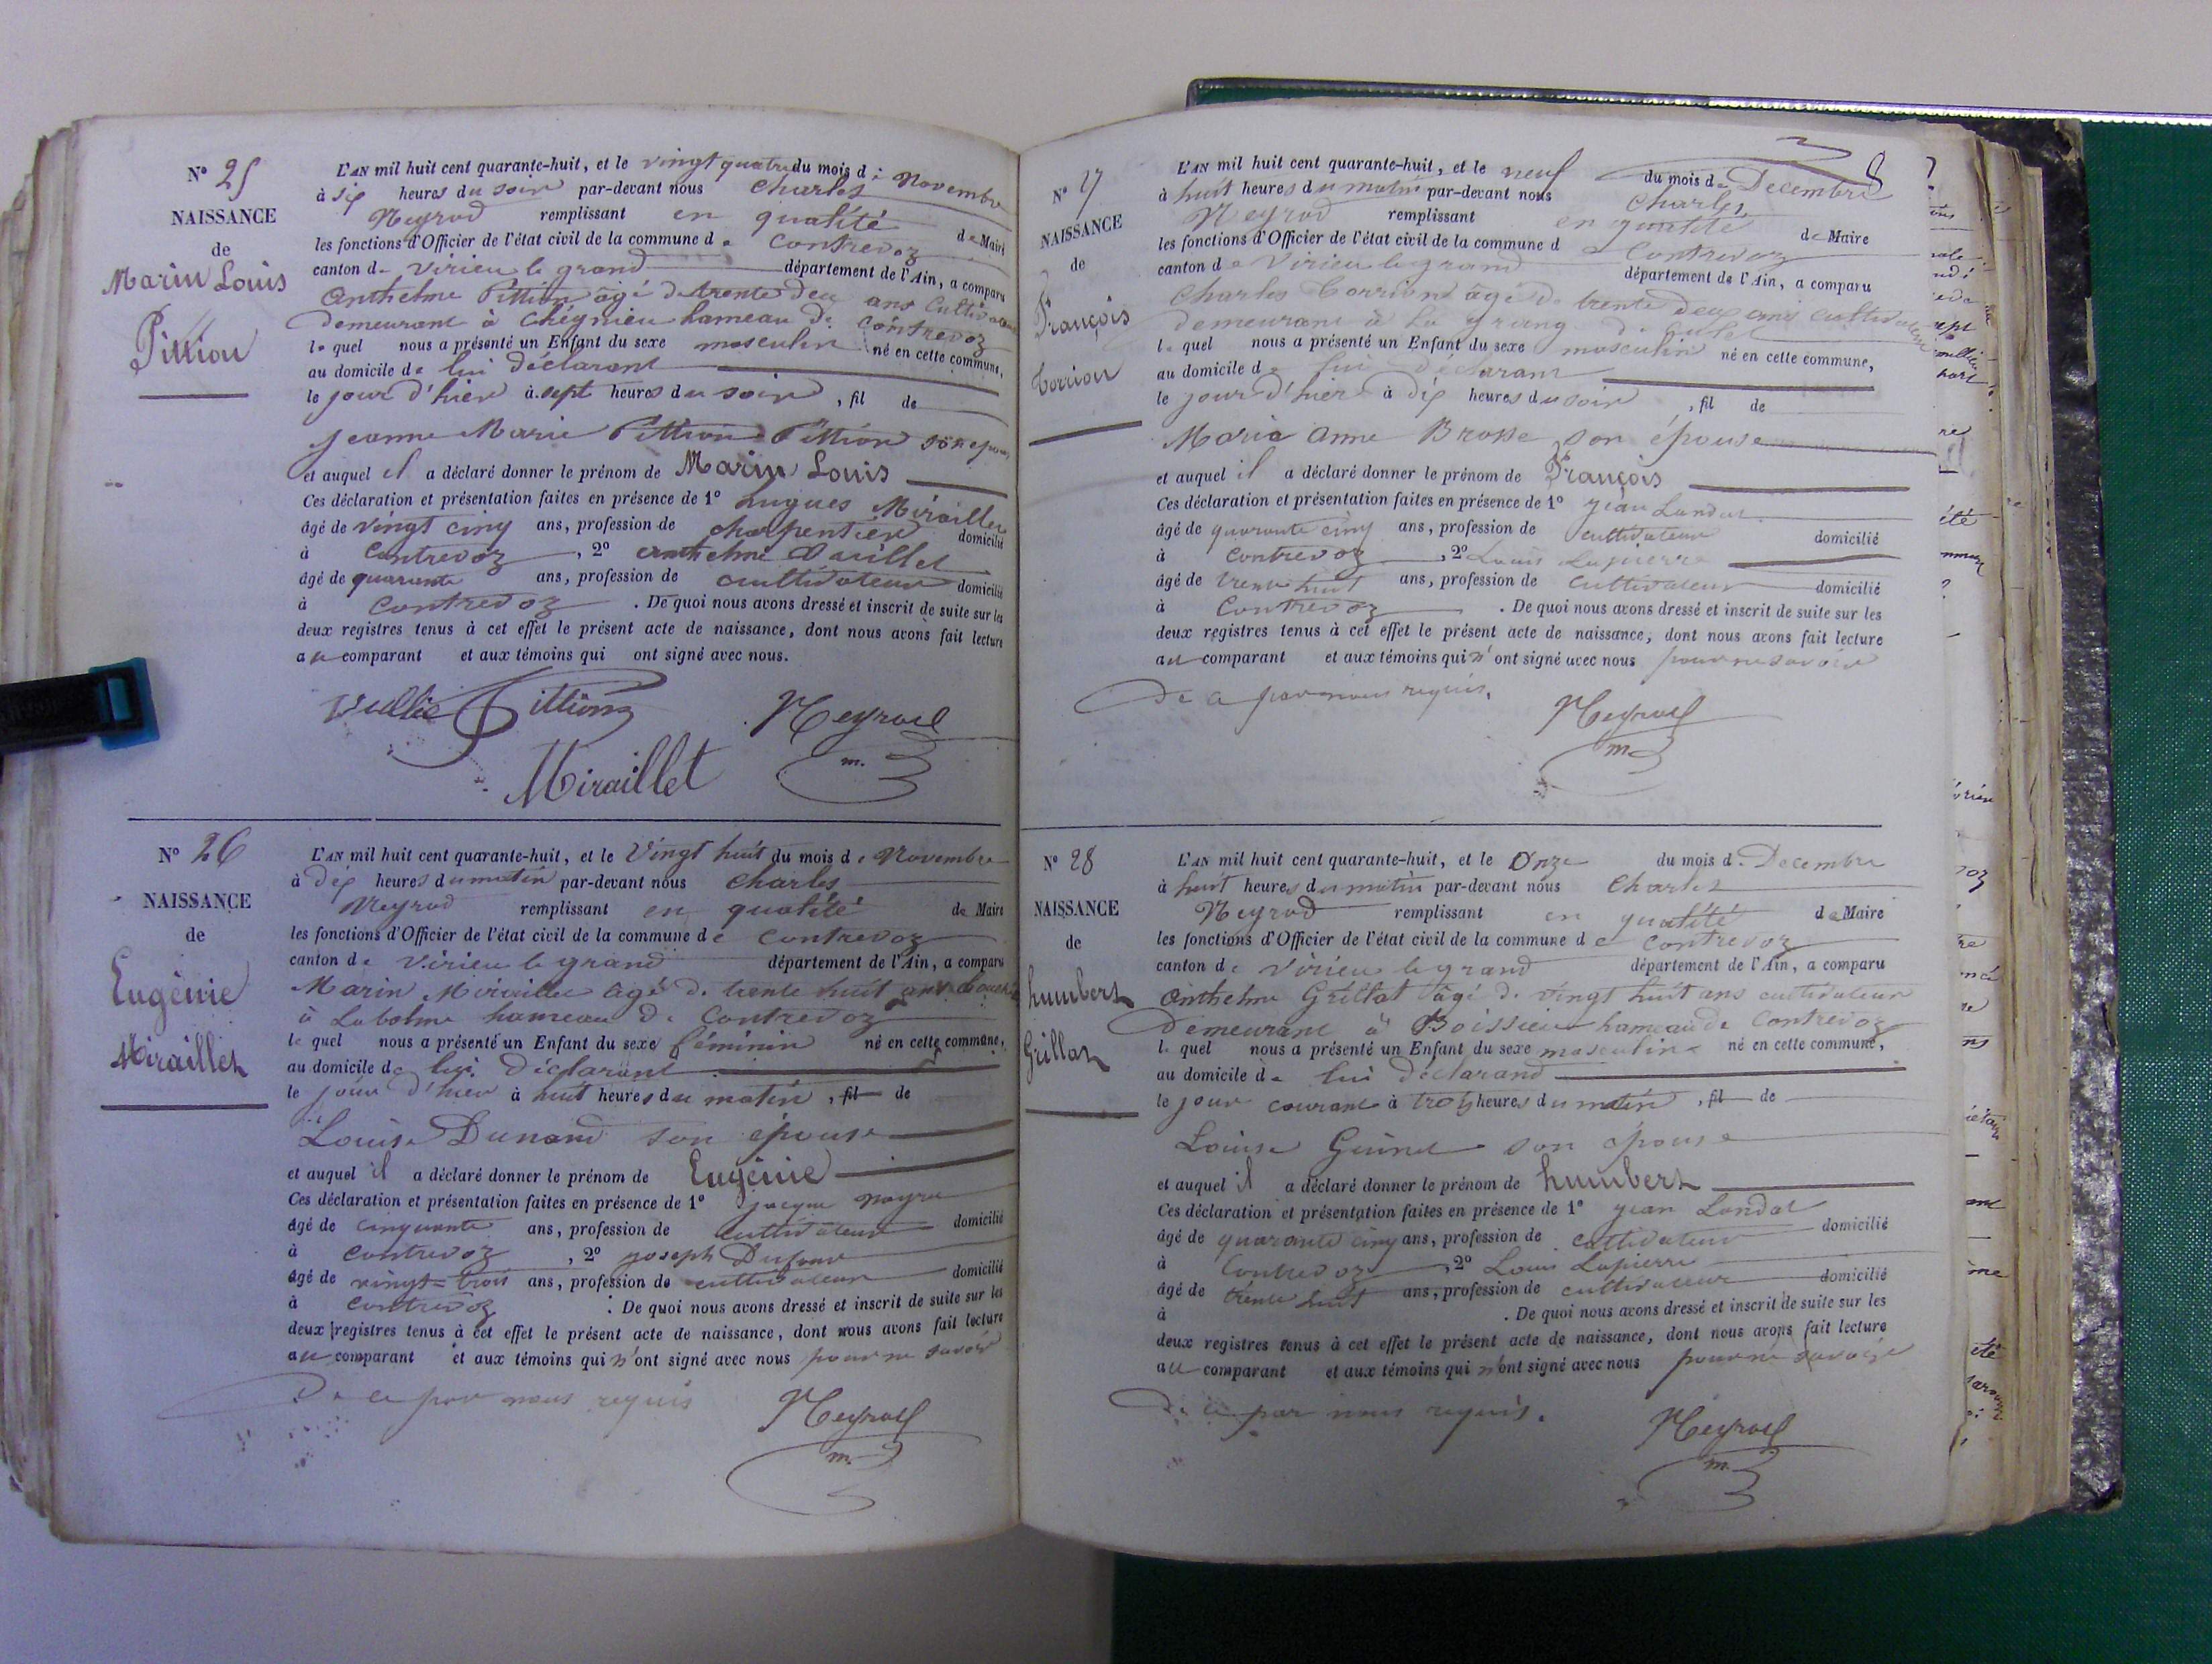 N° 25
NAISSANCE
de
Marin Louis
Pittion
L'AN mil huit cent quarante-huit, et le vingt quatre du mois de Novembre
à six heures du soir par-devant nous Charles
Neyrod remplissant en qualité de Maire
les fonctions d'Officier de l'état civil de la commune de Contrevoz
canton de Virieu le grand département de l'Ain, a comparu
Anthelme Pittion âgé de trente deux ans Cultivateur
demeurant à Chégnieu hameau de Contrevoz
lequel nous a présenté un Enfant du sexe masculin né en cette commune,
au domicile de lui déclarant
le jour d'hier à sept heures du soir, fil de
Jeanne Marie Pittion Pittion son epouse
et auquel il a déclaré donner le prénom de Marin Louis
Ces déclaration et présentation faites en présence de 1° hugues Miraillet
âgé de vingt cinq ans, profession de charpentier domicilié
à Contrevoz, 2° anthelme
âgé de quarante ans, profession de cultivateur domicilié
à Contrevoz. De quoi nous avons dressé et inscrit de suite sur les
deux registres tenus à cet effet le présent acte de naissance, dont nous avons fait lecture
au comparant et aux témoins qui ont signé avec nous.
Pittion Neyrod
m.
Miraillet
N° 26
NAISSANCE
de
Eugénie
Miraillet
L'AN mil huit cent quarante-huit, et le Vingt huit du mois de Novembre
à dix heures du matin par-devant nous Charles
Neyrod remplissant en qualité de Maire
les fonctions d'Officier de l'état civil de la commune de Contrevoz
canton de Virieu le grand département de l'Ain, a comparu
Marin Miraillet âgé de trente huit ans
à Labalme hameau de Contrevoz
lequel nous a présenté un Enfant du sexe féminin né en cette commune,
au domicile de lui déclarant
le jour d'hier à huit heures du matin, fil de
Louise Dunand son épouse
et auquel il a déclaré donner le prénom de Eugénie
Ces déclaration et présentation faites en présence de 1° jacque
âgé de cinquante ans, profession de cultivateur domicilié
à Contrevoz, 2° joseph Dufour
âgé de vingt=trois ans, profession de cultivateur domicilié
à Contrevoz. De quoi nous avons dressé et inscrit de suite sur les
deux registres tenus à cet effet le présent acte de naissance, dont nous avons fait lecture
au comparant et aux témoins qui n'ont signé avec nous pour ne savoir
de ce par nous requis
Neyrod
m.
8
N° 27
NAISSANCE
de
François
Corrion
L'AN mil huit cent quarante-huit, et le neuf du mois de Decembre
à huit heures du matin par-devant nous Charles
Neyrod remplissant en qualité de Maire
les fonctions d'Officier de l'état civil de la commune de Contrevoz
canton de Virieu le grand département de l'Ain, a comparu
Charles Corrion âgé de trente deux ans cultivateur
demeurant à La grang de
lequel nous a présenté un Enfant du sexe masculin né en cette commune,
au domicile de lui déclarant
le jour d'hier à dix heures du soir, fil de
Marie Anne Brosse son épouse
et auquel il a déclaré donner le prénom de François
Ces déclaration et présentation faites en présence de 1° jean Landat
âgé de quarante cinq ans, profession de cultivateur domicilié
à Contrevoz, 2° Louis Lapierre
âgé de trente huit ans, profession de cultivateur domicilié
à Contrevoz. De quoi nous avons dressé et inscrit de suite sur les
deux registres tenus à cet effet le présent acte de naissance, dont nous avons fait lecture
au comparant et aux témoins qui n'ont signé avec nous pour ne savoir
de ce par nous requis.
Neyrod
m.
N° 28
NAISSANCE
de
humbert
Grillat
L'AN mil huit cent quarante-huit, et le Onze du mois de Decembre
à huit heures du matin par-devant nous Charles
Neyrod remplissant en qualité de Maire
les fonctions d'Officier de l'état civil de la commune de Contrevoz
canton de Virieu le grand département de l'Ain, a comparu
Anthelme Grillat âgé de vingt huit ans cultivateur
Demeurant à Boissieu hameau de Contrevoz
lequel nous a présenté un Enfant du sexe masculin né en cette commune,
au domicile de lui déclarand
le jour courant à trois heures du matin, fil de
Louise Guinet son épouse
et auquel il a déclaré donner le prénom de humbert
Ces déclaration et présentation faites en présence de 1° jean Landat
âgé de quarante cinq ans, profession de cultivateur domicilié
à Contrevoz, 2° Louis Lapierre
âgé de trente huit ans, profession de cultivateur domicilié
à . De quoi nous avons dressé et inscrit de suite sur les
deux registres tenus à cet effet le présent acte de naissance, dont nous avons fait lecture
au comparant et aux témoins qui n'ont signé avec nous pour ne savoir
de ce par nous requis.
Neyrod
m.